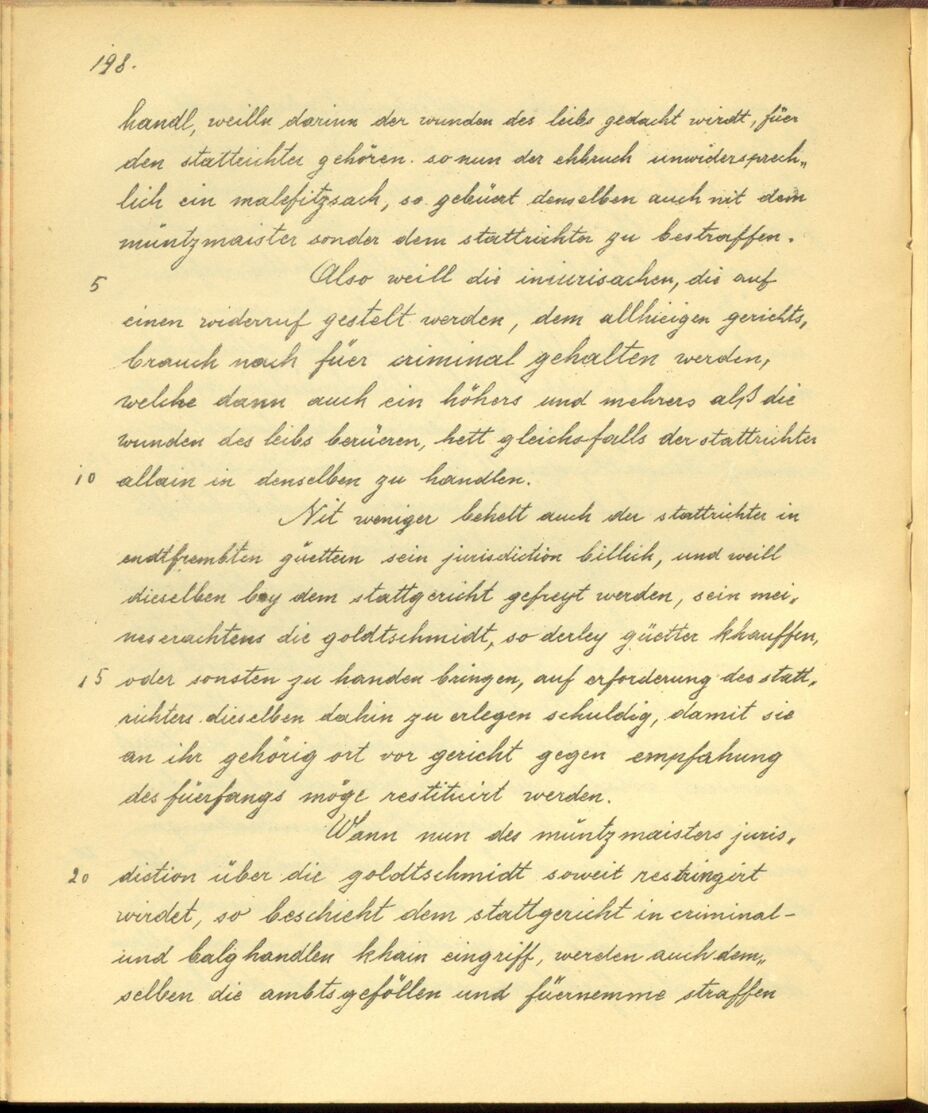 198.
handl, weilln darinn der wunden des leibs gedacht wirdt, füer
den stattrichter gehören. so nun der ehbruch unwidersprech„
lich ein malefitzsach, so gebüert denselben auch nit dem
müntzmaister sonder dem stattrichter zu bestraffen.
5 Also weill die iniurisachen, die auf
einen widerruf gestelt werden, dem allhieigen gerichts„
brauch nach füer criminal gehalten werden,
welche dann auch ein höhers und mehrers alß die
wunden des leibs berüeren, hett gleichsfalls der stattrichter
10 allain in denselben zu handlen.
Nit weniger behelt auch der stattrichter in
endtfrembten güettern sein jurisdiction billich, und weill
dieselben bey dem stattgericht gefreyt werden, sein mei„
neserachtens die goldtschmidt, so derley güetter khauffen,
15 oder sonsten zu handen bringen, auf erforderung des statt„
richters dieselben dahin zu erlegen schuldig, damit sie
an ihr gehörig ort vor gericht gegen empfahung
des füerfangs möge restituirt werden.
Wann nun des müntzmaisters juris„
20 diction über die goldtschmidt soweit restringirt
wirdet, so beschieht dem stattgericht in criminal-
und balghandlen khain eingriff, werden auch dem„
selben die ambtsgeföllen und füernemme straffen